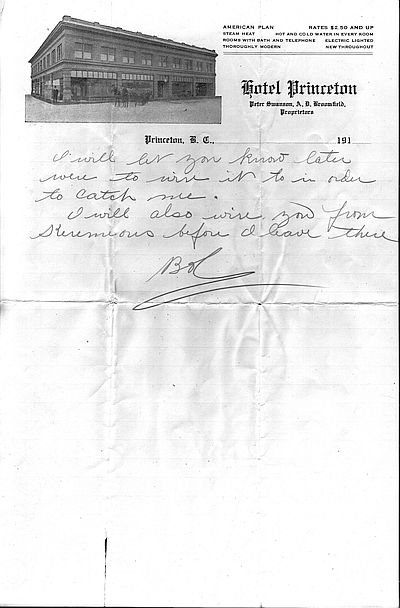 AMERICAN PLAN RATES $2.50 AND UP
STEAM HEAT HOT AND COLD WATER IN EVERY ROOM
ROOMS WITH BATH AND TELEPHONE ELECTRIC LIGHTED
THOROUGHLY MODERN NEW THROUGHOUT
Hotel Princeton
Peter Swanson, A. D. Broomfield,
Proprietors
Princeton, B. C., 191
I will let you know later
were to wire it to in order
to catch me.
I will also wire you from
Keremeous before I leave there
Bob